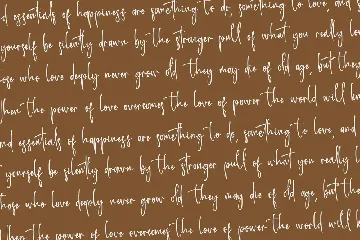 d essentials of happiness are something to do, something to love, and
yourself be silently drawn by the stronger pull of what you really lov
ose who love deeply never grow old they may die of old age, but they
hen the power of love overcomes the love of power the world will
nd essentials of happiness are something to do, something to love, and
yourself be silently drawn by the stronger pull of what you really l
hose who love deeply never grow old they may die of old age, but th
When the power of love overcomes the love of power the world will